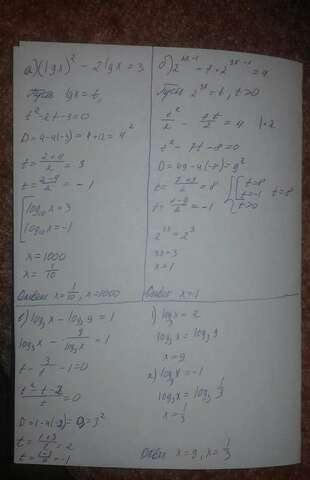 а) (lgx)² - 2lgx = 3
Пусть lgx = t,
t² - 2t - 3 = 0
D = 4 - 4(-3) = 4 + 12 = 4²
t = (2+4)/2 = 3
t = (2-4)/2 = -1
log₁₀x = 3
log₁₀x = -1
x = 1000
x = 1/10
Ответ x = 1/10, x = 1000
б) 2^(6x-1) - 7 · 2^(3x-1) = 4
Пусть 2^(3x) = t, t>0
t²/2 - 7t/2 = 4 | ·2
t² - 7t - 8 = 0
D = 49 - 4(-8) = 9²
t = (7+9)/2 = 8
t = (7-9)/2 = -1
t = 8
t = -1
t > 0
t = 8
2^(3x) = 2³
3x = 3
x = 1
Ответ x = 1
в) log₃x - logₓ9 = 1
log₃x - 2/log₃x = 1
D = 1 - 4(-2) = 3²
t = (1+3)/2 = 2
t = (1-3)/2 = -1
1) log₃x = 2
log₃x = log₃9
x = 9
2) log₃x = -1
log₃x = log₃ 1/3
x = 1/3
Ответ x = 9, x = 1/3